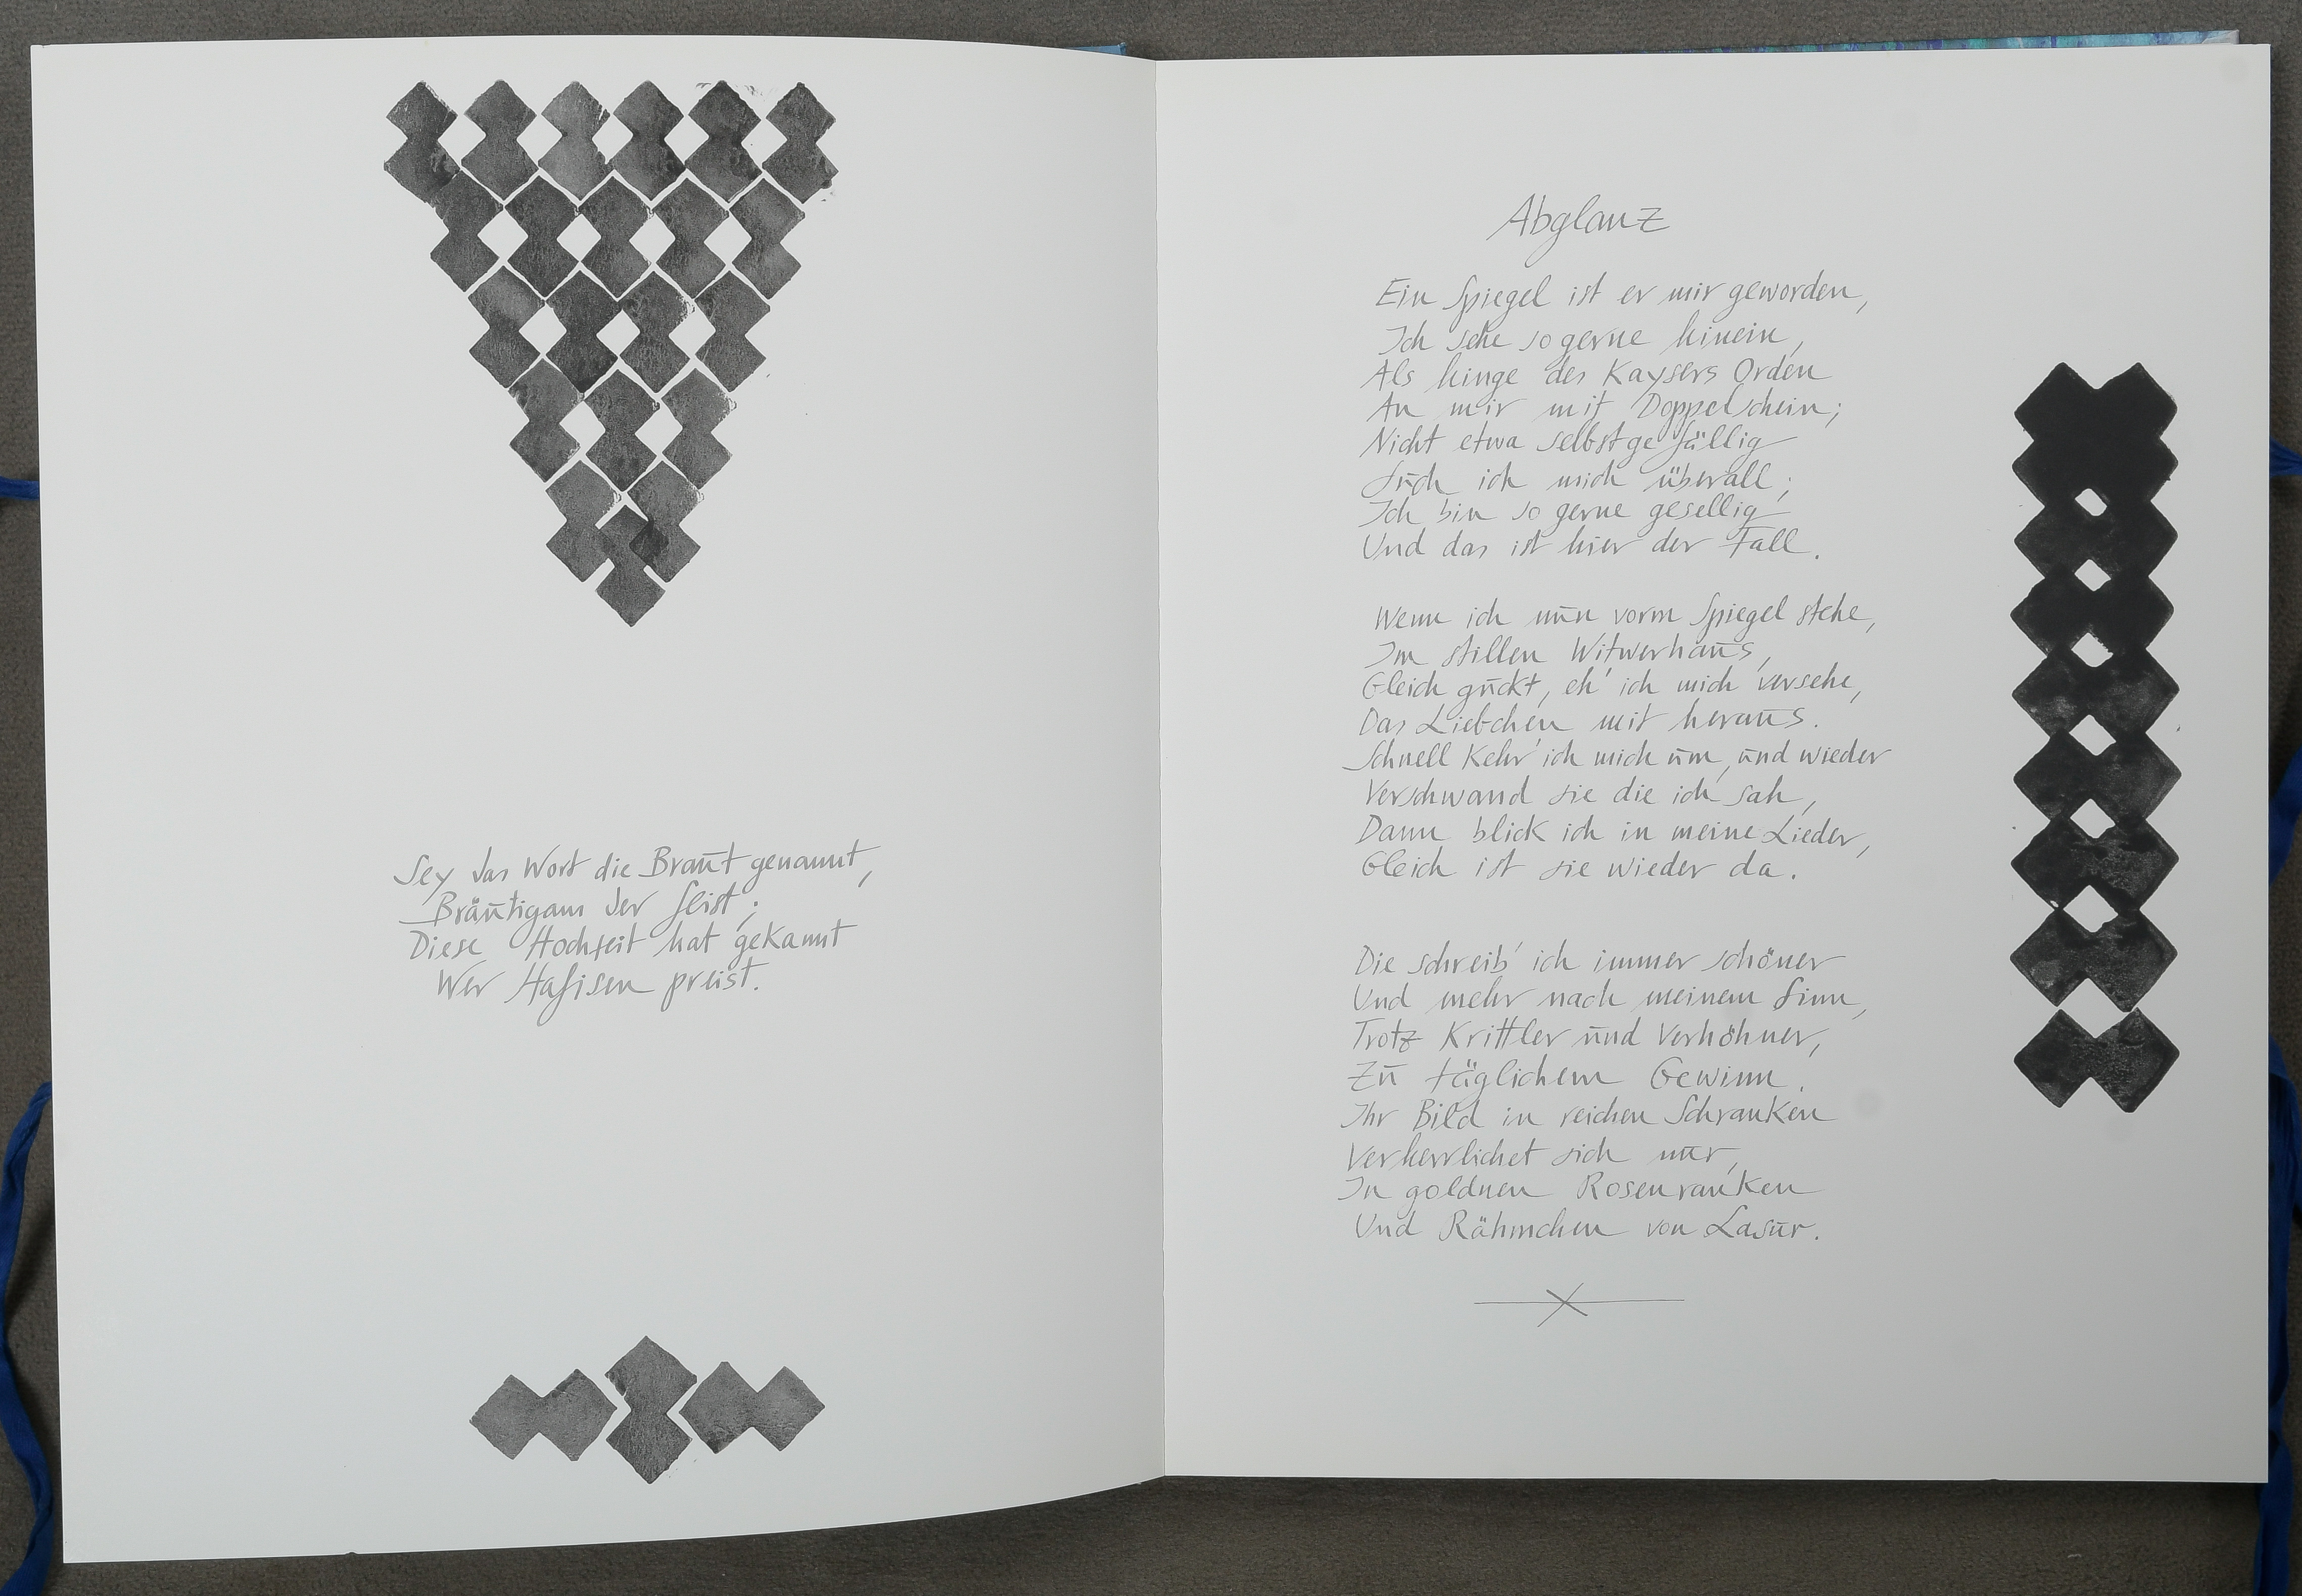 Sey das Wort die Braut genannt,
Bräutigam der Geist;
Diese Hochzeit hat gekannt
Wer Hafisen preist.
Abglanz
Ein Spiegel ist er mir geworden,
Ich sehe so gerne hinein,
Als hinge des Kaysers Orden
An mir mit Doppelschein;
Nicht etwa selbstgefällig
Such ich mich überall;
Ich bin so gerne gesellig
Und das ist hier der Fall.
Wenn ich nun vorm Spiegel stehe,
Im stillen Witwerhaus,
Gleich guckt, eh' ich mich versehe,
Das Liebchen mit heraus.
Schnell kehr' ich mich um, und wieder
Verschwand sie die ich sah,
Dann blick ich in meine Lieder,
Gleich ist sie wieder da.
Die schreib' ich immer schöner
Und mehr nach meinem Sinn,
Trotz Krittler und Verhöhner,
Zu täglichem Gewinn.
Ihr Bild in reichen Schranken
Verherrlichet sich nur,
In goldnen Rosenranken
Und Rähmchen von Lasur.